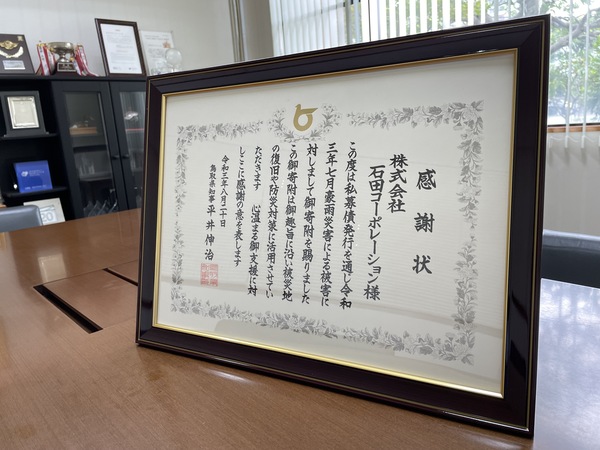 感謝状
株式会社
石田コーポレーション様
この度は私募債発行を通じ令和
三年七月豪雨災害による被害に
対しまして御寄附を賜りました
この御寄附は御趣旨に沿い被災地
の復旧や防災対策に活用させてい
ただきます 心温まる御支援に対
しここに感謝の意を表します
令和三年八月二十日
鳥取県知事 平井伸治